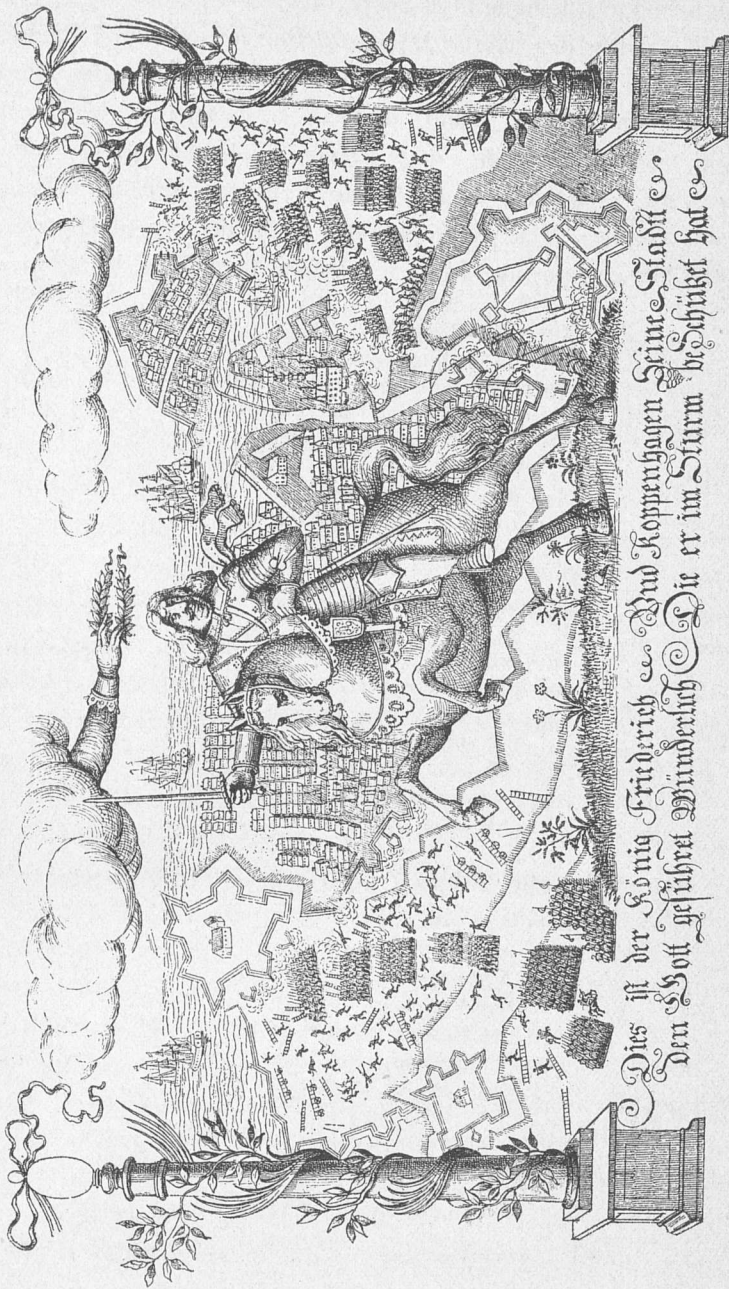 Dies ist der König Friederich Vnd Koppenhagen Seine Stadt
den Gott geführet Wünderlich Die er im Sturm beschützet hat